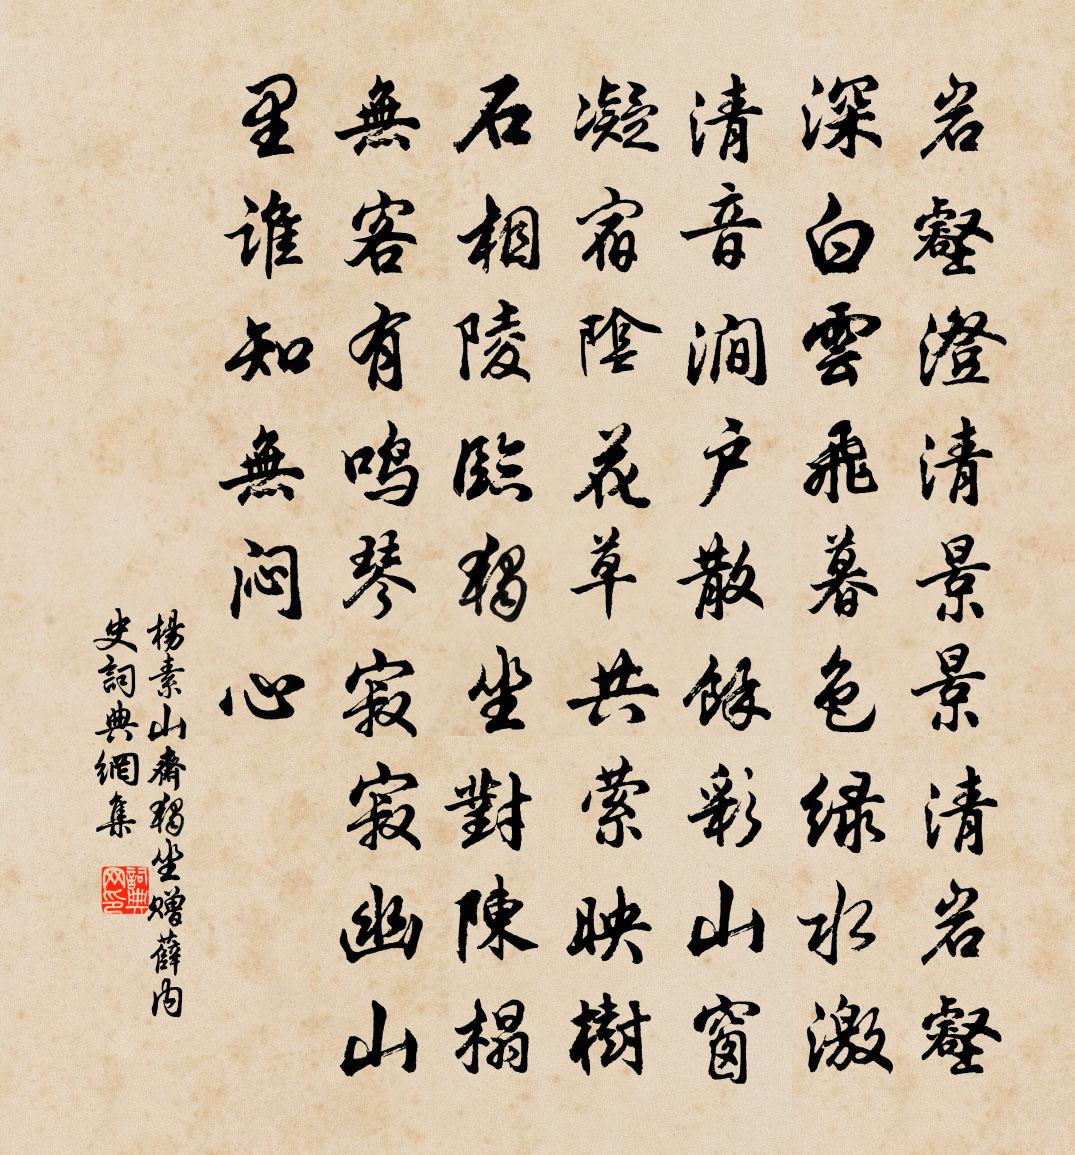 岩壑澄清景景清岩壑
深白雲飛暮色緑水激
清音澗户散餘彩山窗
凝宿陰花草共萦映樹
石相陵臨獨坐對陳榻
無客有鳴琴寂寂幽山
里誰知無悶心
楊素山齋獨坐贈薛内
史詞典網集
詞典
网印